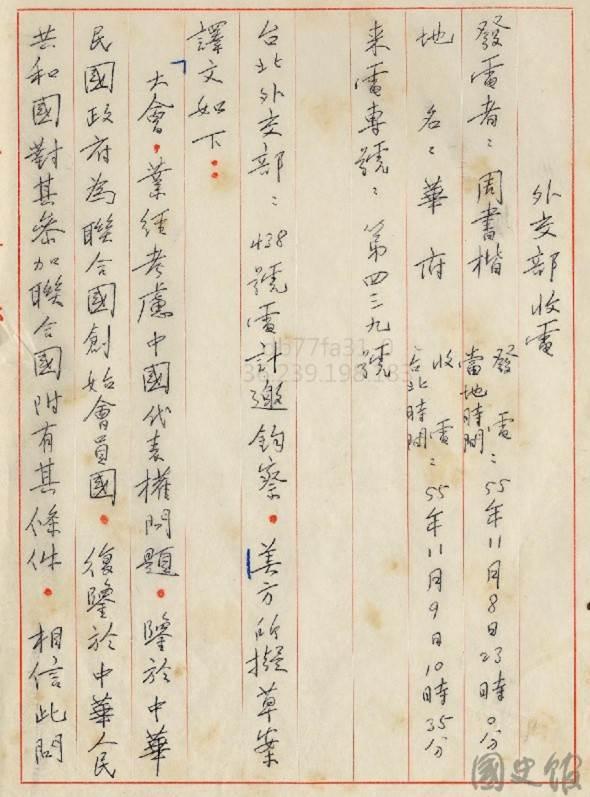 外交部收電
發電者：周書楷
發電當地時間：55年11月8日23時0分
地名：華府
收電台北時間：55年11月9日10時35分
来電專號：第四三九號
台北外交部：438號電計邀鈞察。美方所擬草案
譯文如下：
「大會。業經考慮中國代表權問題。鑒於中華
民國政府為聯合國創始會員國。復鑒於中華人民
共和國對其參加聯合國附有其條件。相信此問
國史館